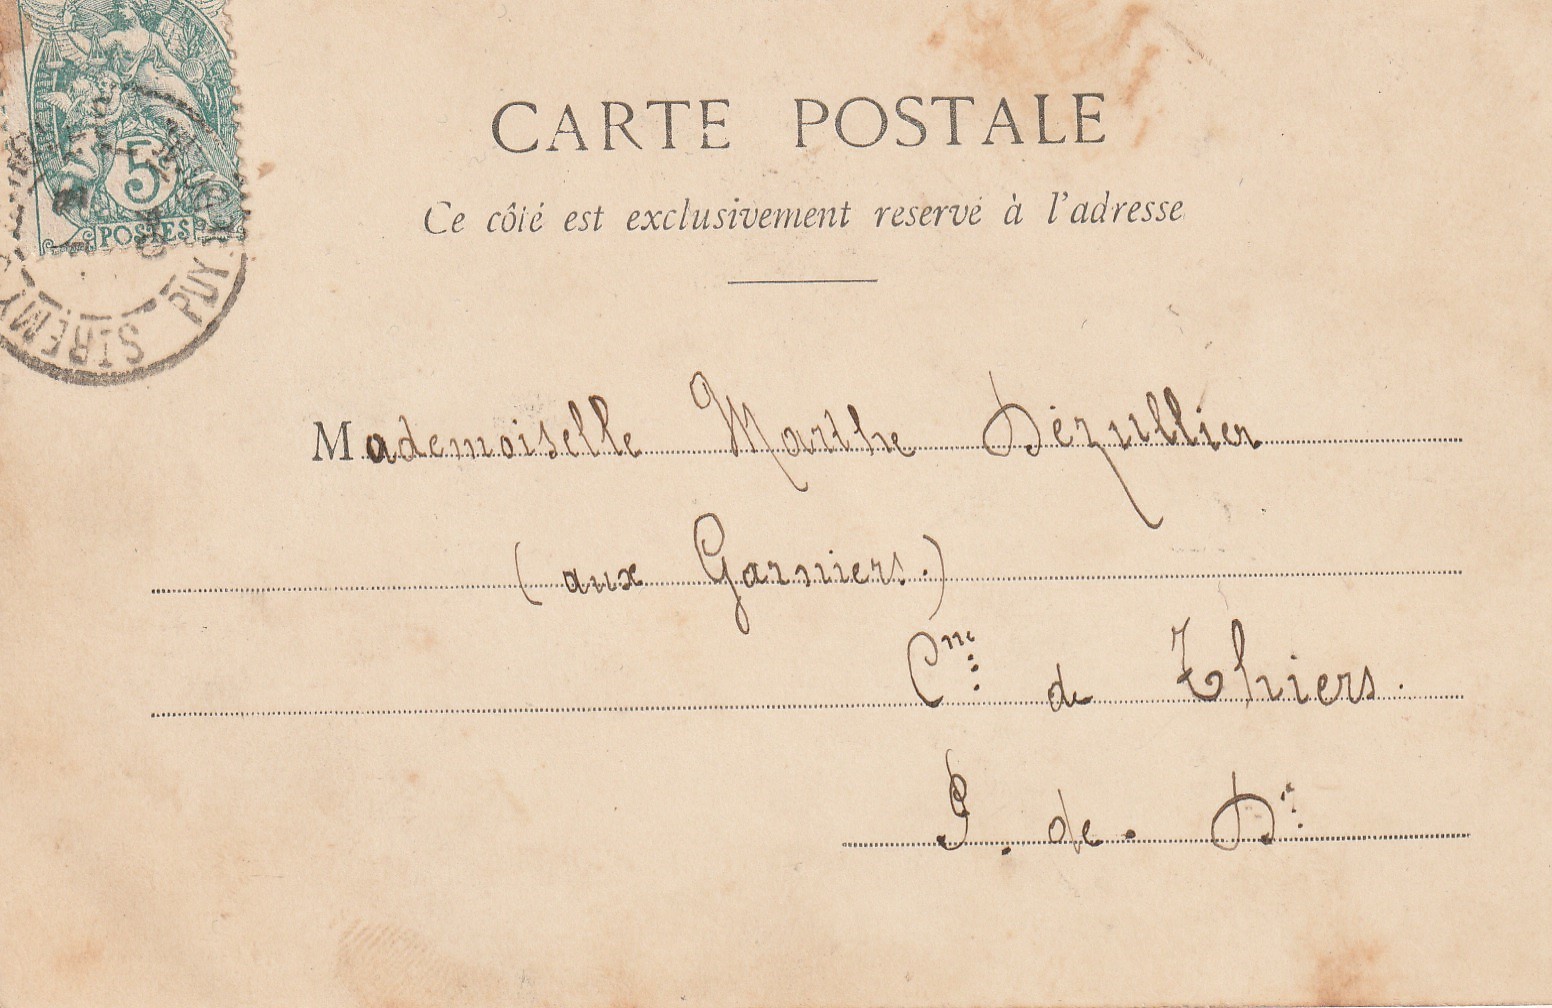 5
POSTES
ST REMY
PUY
CARTE POSTALE
Ce côté est exclusivement reservé à l'adresse
Mademoiselle Marthe Dézullier
(aux Garniers.)
Cne de Thiers.
P. de. De